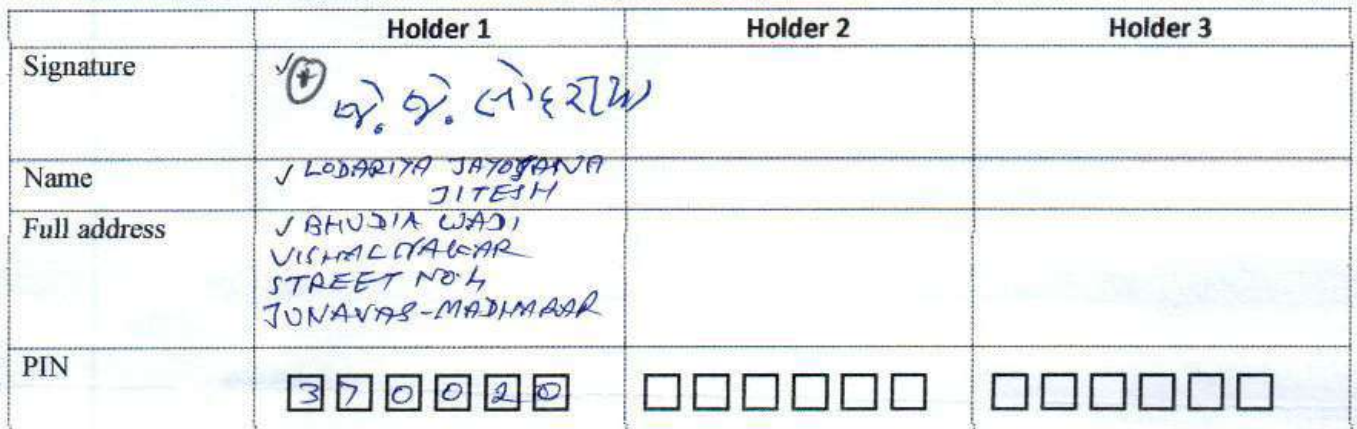 Holder 1 Holder 2 Holder 3
Signature
જે. જે. લોદરીયા
Name ✓ LODARIYA JAYOTSANA
JITESH
Full address ✓ BHUDIA WADI
VISHALNAGAR
STREET NO 4
JUNAVAS-MADHAPAR
PIN 3 7 0 0 2 0